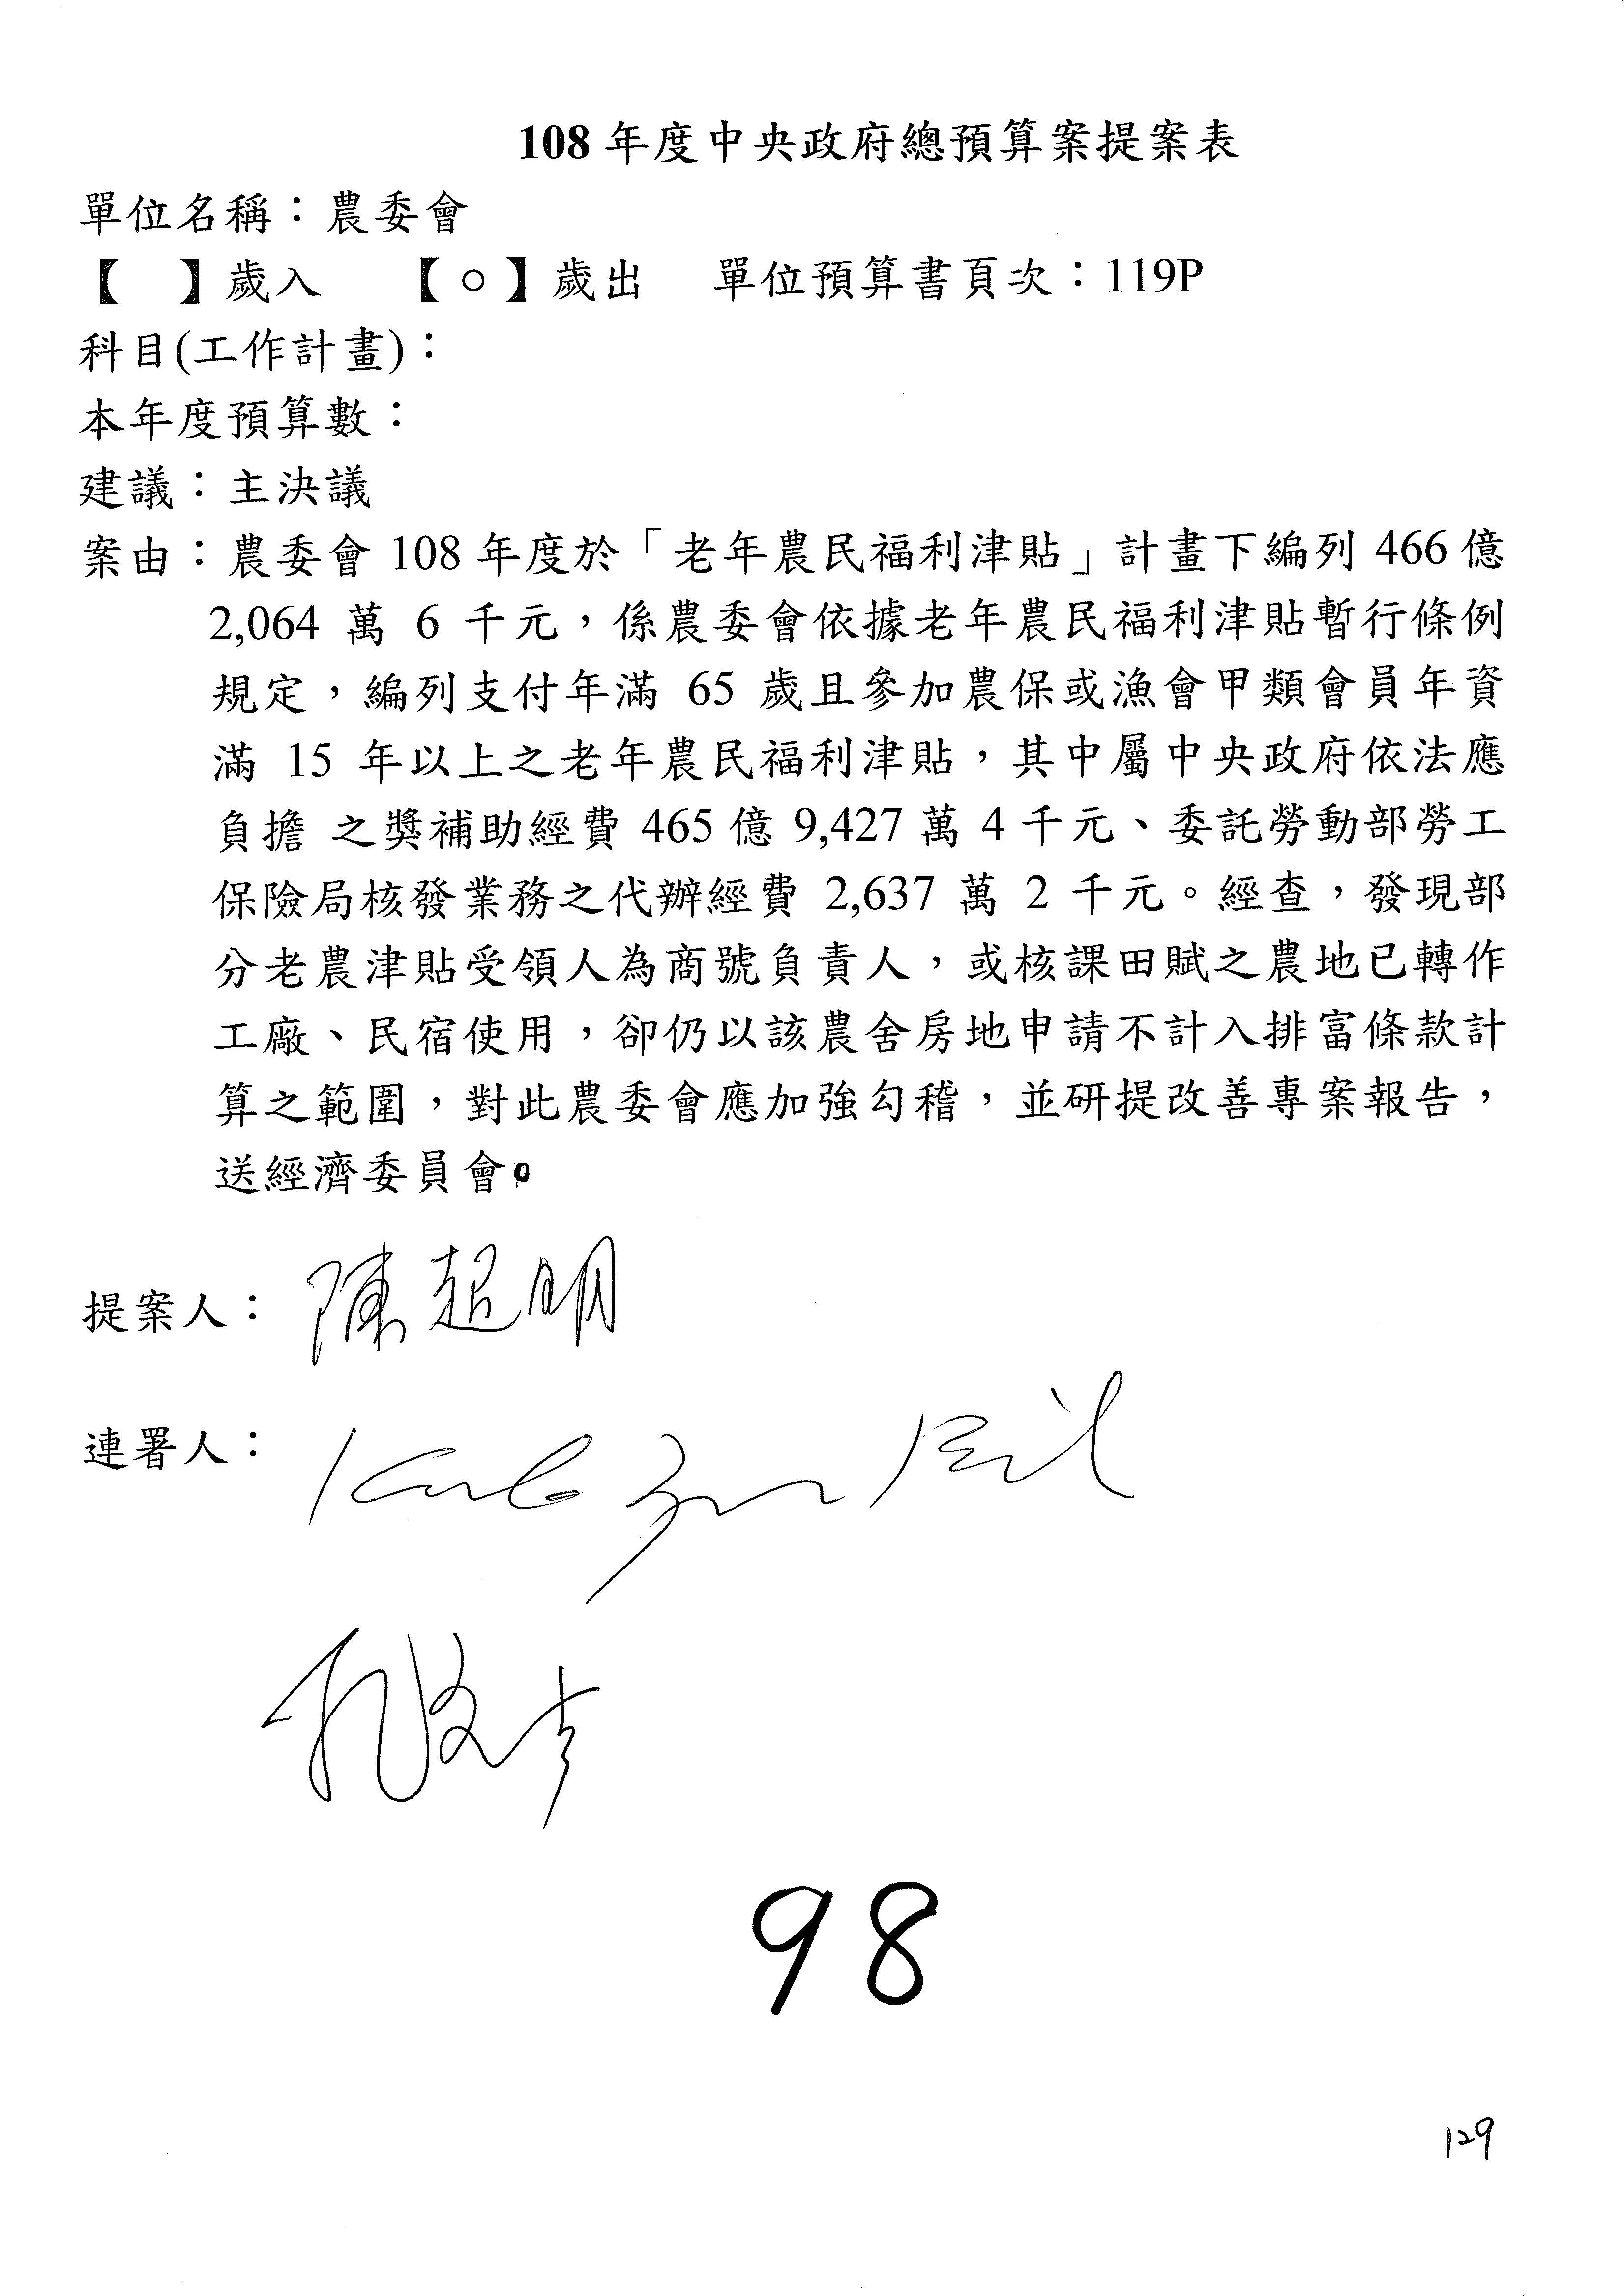 108 年度中央政府總預算案提案表
單位名稱：農委會
【　】歲入　【○】歲出　單位預算書頁次：119P
科目(工作計畫)：
本年度預算數：
建議：主決議
案由：農委會 108 年度於「老年農民福利津貼」計畫下編列 466 億
2,064 萬 6 千元，係農委會依據老年農民福利津貼暫行條例
規定，編列支付年滿 65 歲且參加農保或漁會甲類會員年資
滿 15 年以上之老年農民福利津貼，其中屬中央政府依法應
負擔 之獎補助經費 465 億 9,427 萬 4 千元、委託勞動部勞工
保險局核發業務之代辦經費 2,637 萬 2 千元。經查，發現部
分老農津貼受領人為商號負責人，或核課田賦之農地已轉作
工廠、民宿使用，卻仍以該農舍房地申請不計入排富條款計
算之範圍，對此農委會應加強勾稽，並研提改善專案報告，
送經濟委員會。
提案人：陳超明
連署人：
孔文吉
98
129